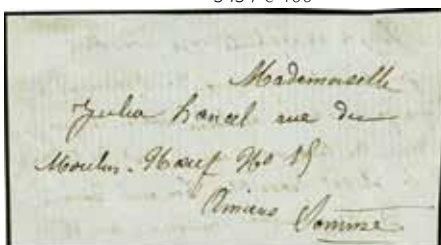 Mademoiselle
Julia hancel rue du
Moulin-Neuf No 15
Amiens Somme